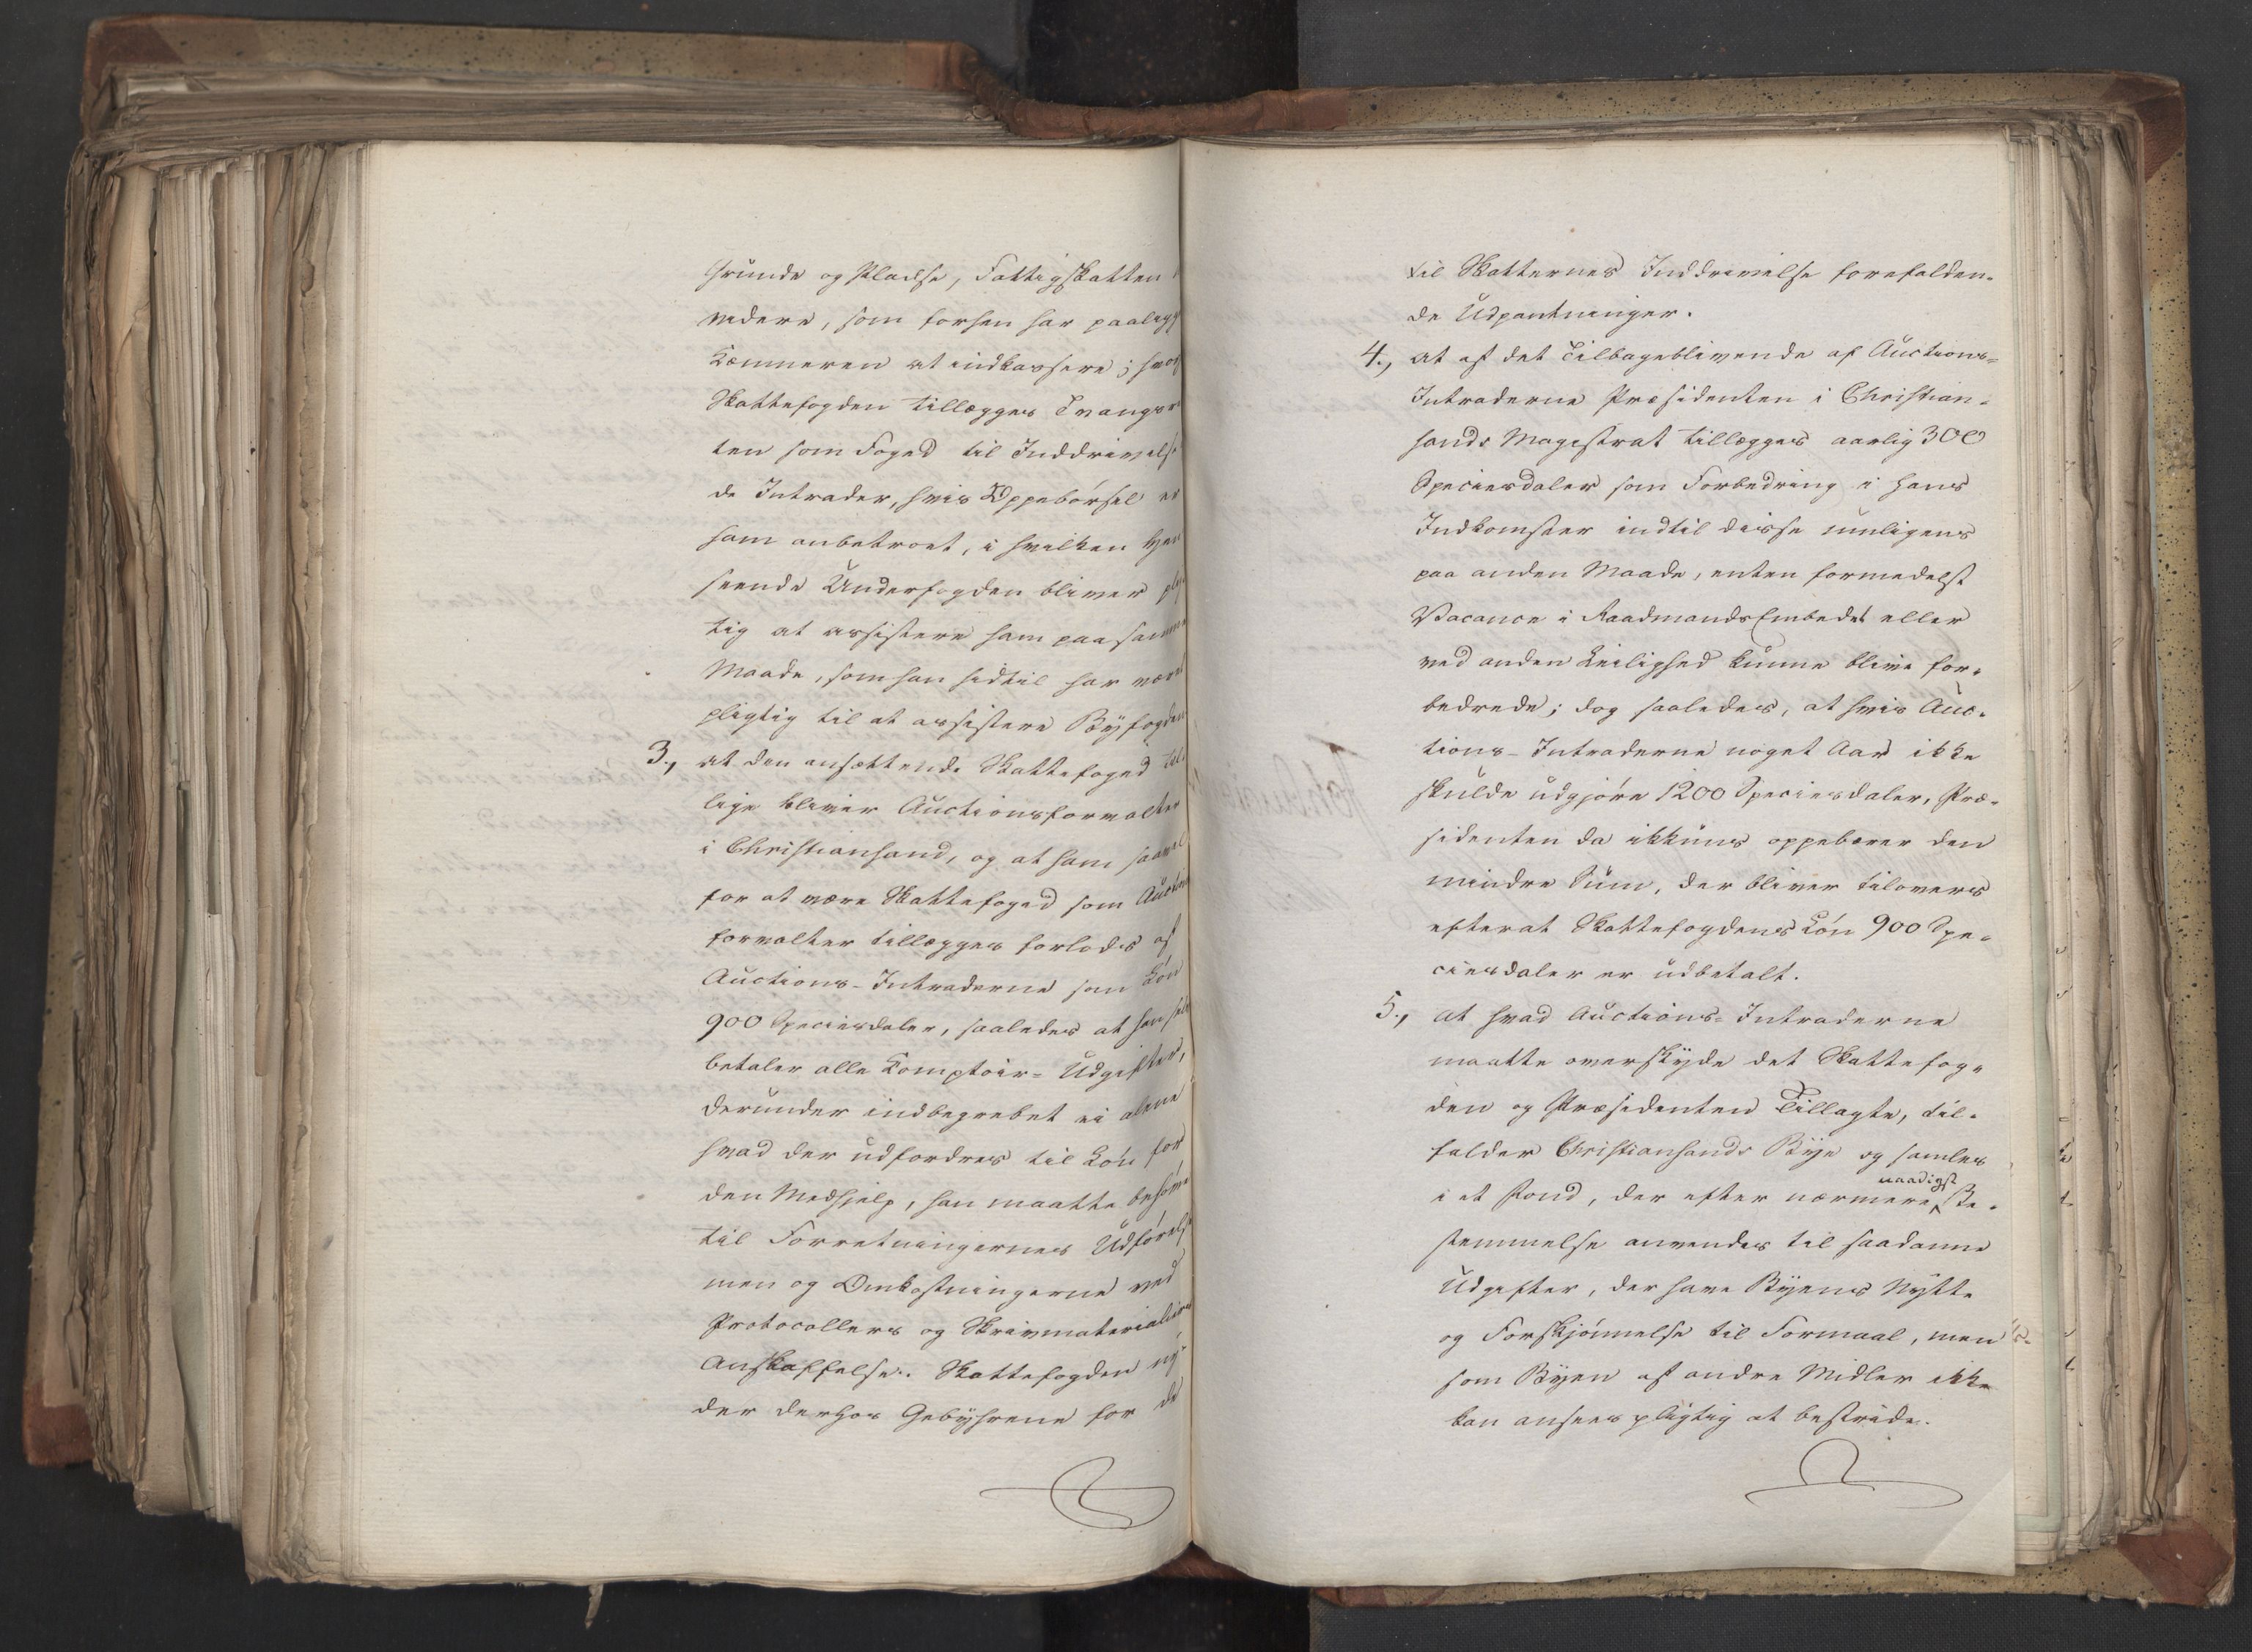 Grunde og Pladse, Fattigskatten
videre, som forhen har paalagt
Kæmneren at indkassere; hvor
Skattefogden tillægges Tvangsre
ten som Foged til Inddrivelse
de Intrader, hvis Oppebørsel er
ham anbetroet, i hvilken Hen
seende Underfogden bliver plig
tig at assistere ham paa samme
Maade, som han hidtil har været
pligtig til at assistere Byfogden
3., at den ansættende Skattefoged til
lige bliver Auctionsforvalter
i Christiansand, og at ham saavel
for at være Skattefoged som Auctions
forvalter tillægges forlods af
Auctions-Intraderne som Løn
900 Speciesdaler, saaledes at han selv
betaler alle Comptoir-Udgifter,
derunder indbegrebet ei alene
hvad der udfordres til Løn for
den Medhjelp, han maatte behøve
til Forretningernes Udførelse
men og Omkostningerne ved
Protocollers og Skrivmaterialiers
Anskaffelse. Skattefogden ny-
der derhos Gebyhrene for de
til Skatternes Inddrivelse forefalden-
de Udpantninger.
4., at af det Tilbageblivende af Auctions-
Intraderne Præsidenten i Christian-
sands Magistrat tillægges aarlig 300
Speciesdaler som Forbedring i hans
Indkomster indtil disse muligens
paa anden Maade, enten formedelst
Vacance i Raadmands Embedet eller
ved anden Leilighed kunne blive for-
bedrede; dog saaledes, at hvis Auc-
tions-Intraderne noget Aar ikke
skulde udgjøre 1200 Speciesdaler, Præ-
sidenten da ikkuns oppebærer den
mindre Sum, der bliver tilovers
efterat Skattefogdens Løn 900 Spe-
ciesdaler er udbetalt.
5., at hvad Auctions-Intraderne
maatte overskyde det Skattefog-
den og Præsidenten Tillagte, til-
falder Christiansands Bye og samles
i et Fond, der efter nærmere naadigst Be-
stemmelse anvendes til saadanne
Udgifter, der have Byens Nytte
og Forskjønnelse til Formaal, men
som Byen af andre Midler ikke
kan ansees pligtig at bestride.